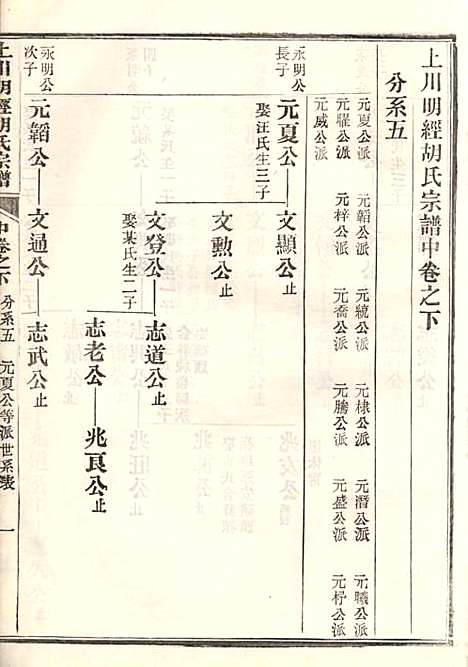 上川明經胡氏宗譜中卷之下
分系五
元夏公派 元韜公派 元統公派 元棣公派 元潛公派 元曦公派
元耀公派 元梓公派 元喬公派 元騰公派 元盛公派 元杼公派
元威公派
永明公長子
元夏公 文顯公止
娶汪氏生三子
文勳公止
文登公 志道公止
娶某氏生二子
志老公 兆良公止
永明公次子
元韜公 文通公止 志武公止
上川明經胡氏宗譜 中卷之下 分系五 元夏公等派世系表 一